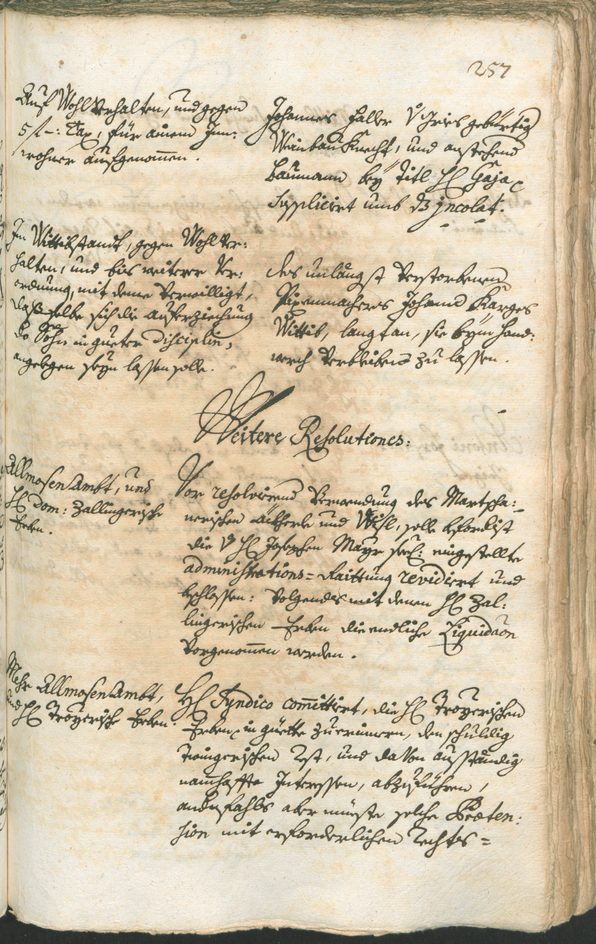 257
Auf Wohlverhalten, und gegen
5 f –: Tax, für einen Inn:
wohner aufgenommen.
Johannes Haller V Gries gebürtig
Weinbau Knecht, und anstehend
Baumann bey Titl H
Supplicirt umb dz Incolat.
Im Wittibstandt, gegen Wohlver:
halten, und bis weitere Ver:
ordnung, mit deme Verwilligt,
dass selbe sich die auferziehung
des Sohn in gueter disciplin,
angelegen seyn lassen solle.
Des unlängst Verstorbenen
Johann Karges
Wittib, langt an, sie beym Hand:
werch Verbleiben zu lassen.
Weitere Resolutiones:
Allmosen Ambt, und
H: Dom: Zallingerische
Erben.
Vor resolvirend Verwendung des
nerischen und solle
die V H Josephen Mayr seel: eingestellte
administrations=Raittung revidirt und
beschlossen: Volgendes mit denen H Zal:
lingerischen Erben die endliche Liquidaon
Vorgenommen werden.
Mehr Allmosen Ambt,
und H Troyerische Erben.
H Syndico committirt, die H Troyerischen
Erben in güette zuerinnern, den schuldig
Rest, und davon ausständig
namhaffte Interessen, abzuführen,
andernfahls aber müeste solche Praeten:
sion mit erforderlichen Rechts=